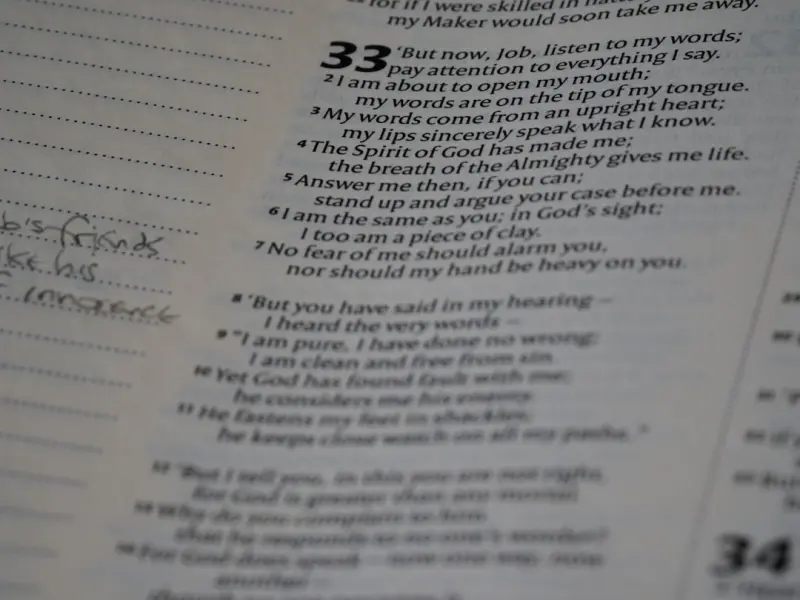 b's friends
his
innocence
for if I were skilled in
my Maker would soon take me away.
33 ‘But now, Job, listen to my words;
pay attention to everything I say.
2 I am about to open my mouth;
my words are on the tip of my tongue.
3 My words come from an upright heart;
my lips sincerely speak what I know.
4 The Spirit of God has made me;
the breath of the Almighty gives me life.
5 Answer me then, if you can;
stand up and argue your case before me.
6 I am the same as you; in God's sight;
I too am a piece of clay.
7 No fear of me should alarm you,
nor should my hand be heavy on you.
8 ‘But you have said in my hearing –
I heard the very words –
9 “I am pure, I have done no wrong;
I am clean and free from sin.
10 Yet God has found fault with me;
he considers me his enemy.
11 He fastens my feet in shackles;
he keeps close watch on all my paths.”
12 ‘But I tell you, in this you are not right,
for God is greater than any mortal.
13 Why do you complain to him
that he responds to no one's words?
14 For God does speak – now one way, now
another –
34